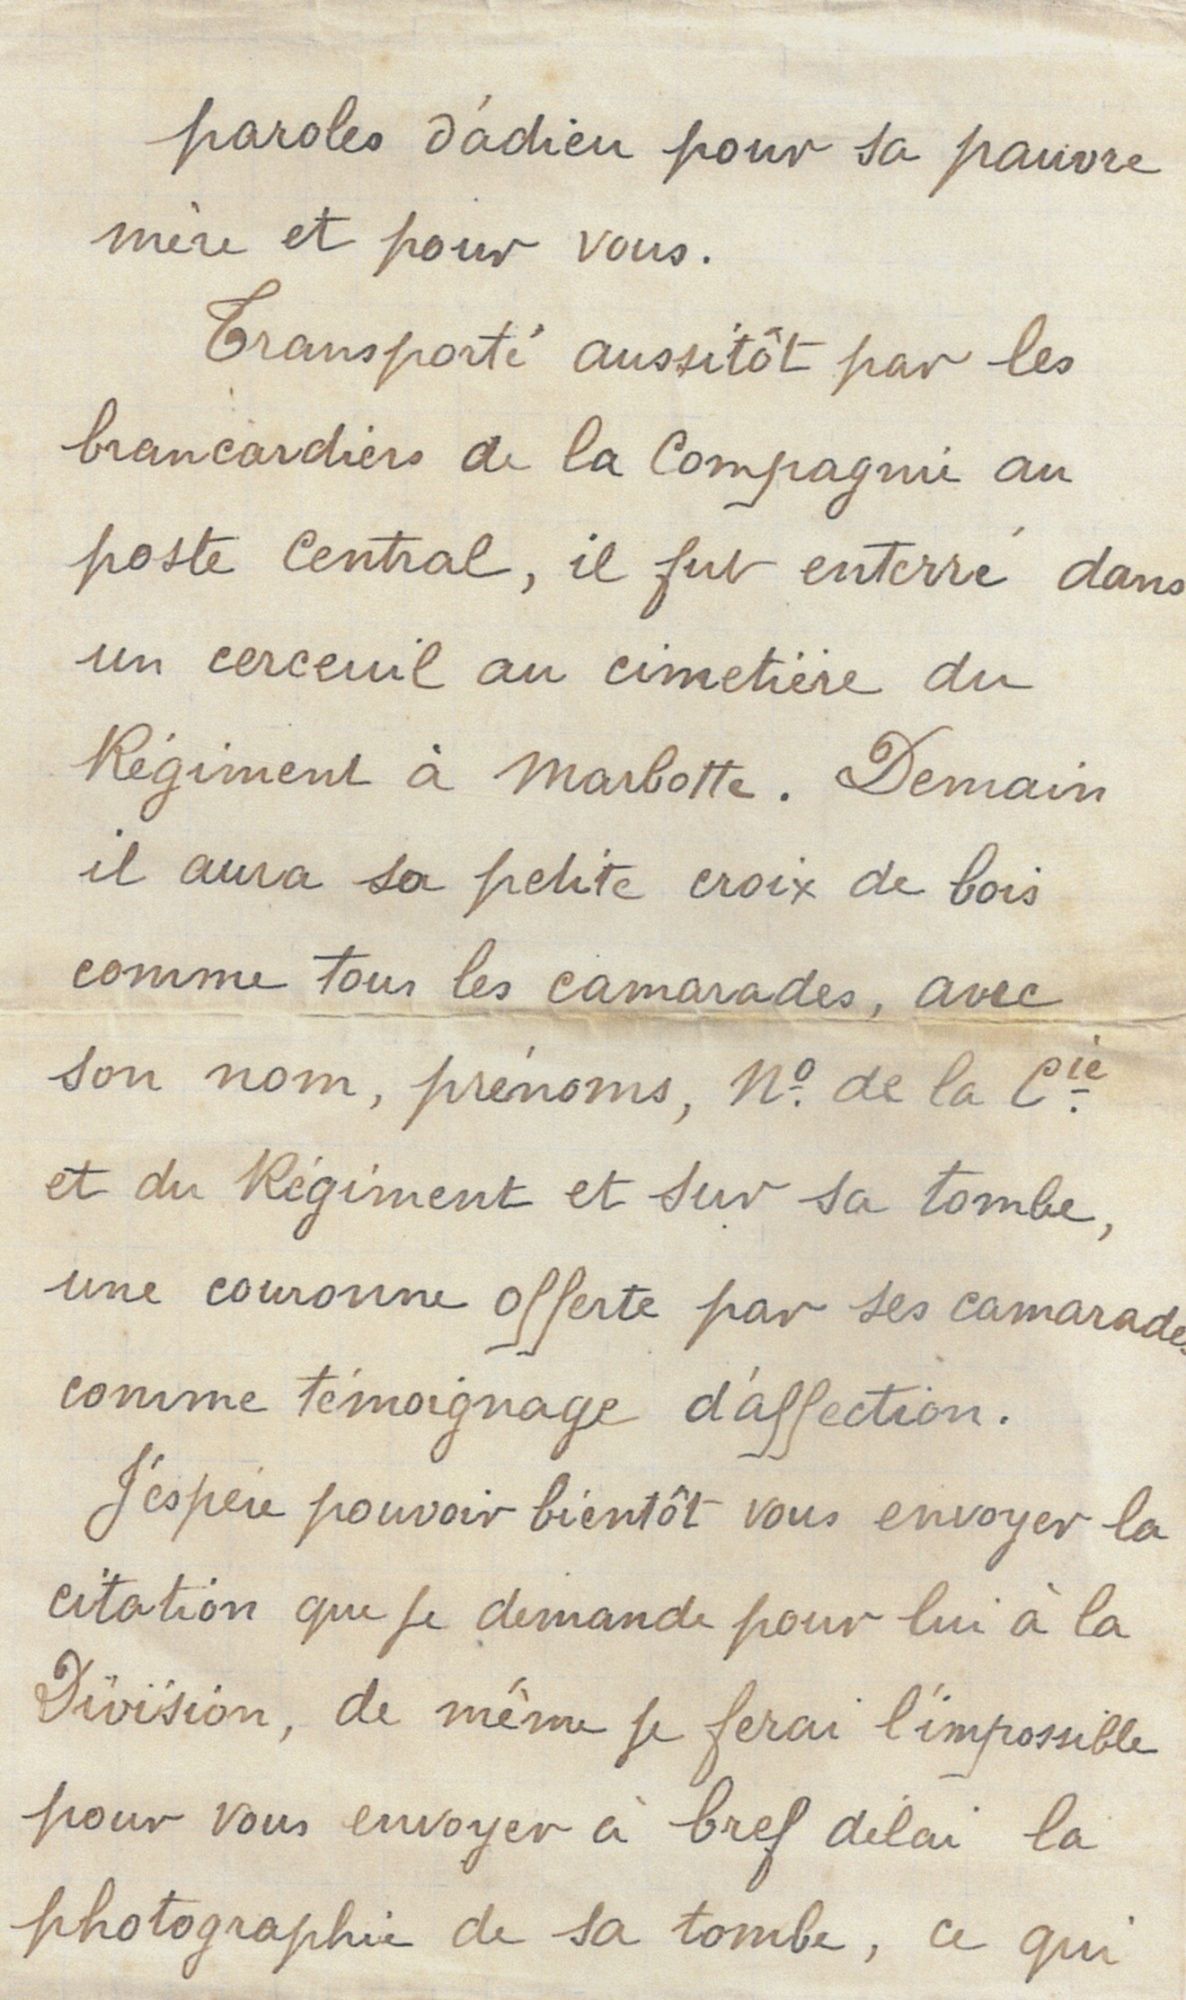 paroles d'adieu pour sa pauvre
mère et pour vous.
Transporté aussitôt par les
brancardiers de la Compagnie au
poste Central, il fut enterré dans
un cerceuil au cimetière du
Régiment à Marbotte. Demain
il aura sa petite croix de bois
comme tous les camarades, avec
son nom, prénoms, No. de la Cie.
et du Régiment et sur sa tombe,
une couronne offerte par ses camarades
comme témoignage d'affection.
J'espère pouvoir bientôt vous envoyer la
citation que je demande pour lui à la
Division, de même je ferai l'impossible
pour vous envoyer à bref délai la
photographie de sa tombe, ce qui